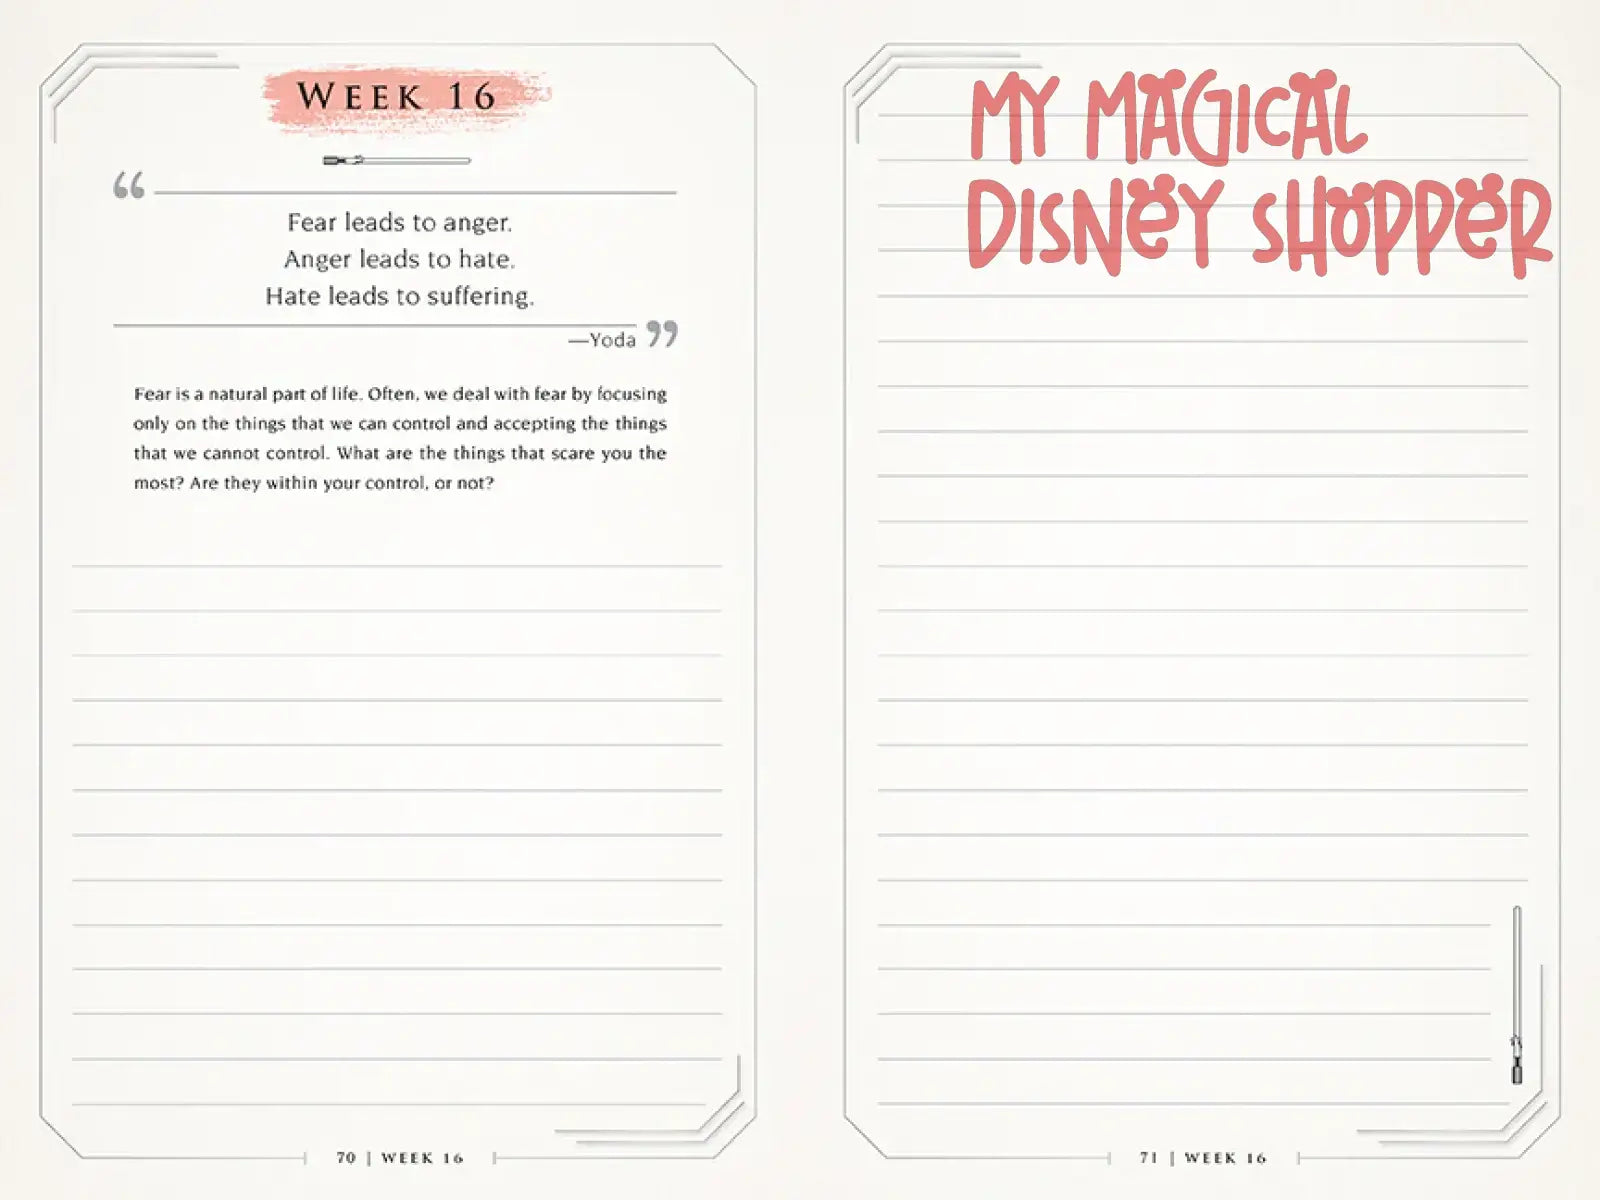 WEEK 16
“
Fear leads to anger.
Anger leads to hate.
Hate leads to suffering.
—Yoda ”
Fear is a natural part of life. Often, we deal with fear by focusing
only on the things that we can control and accepting the things
that we cannot control. What are the things that scare you the
most? Are they within your control, or not?
70 | WEEK 16
MY MAGICAL
DISNEY SHOPPER
71 | WEEK 16